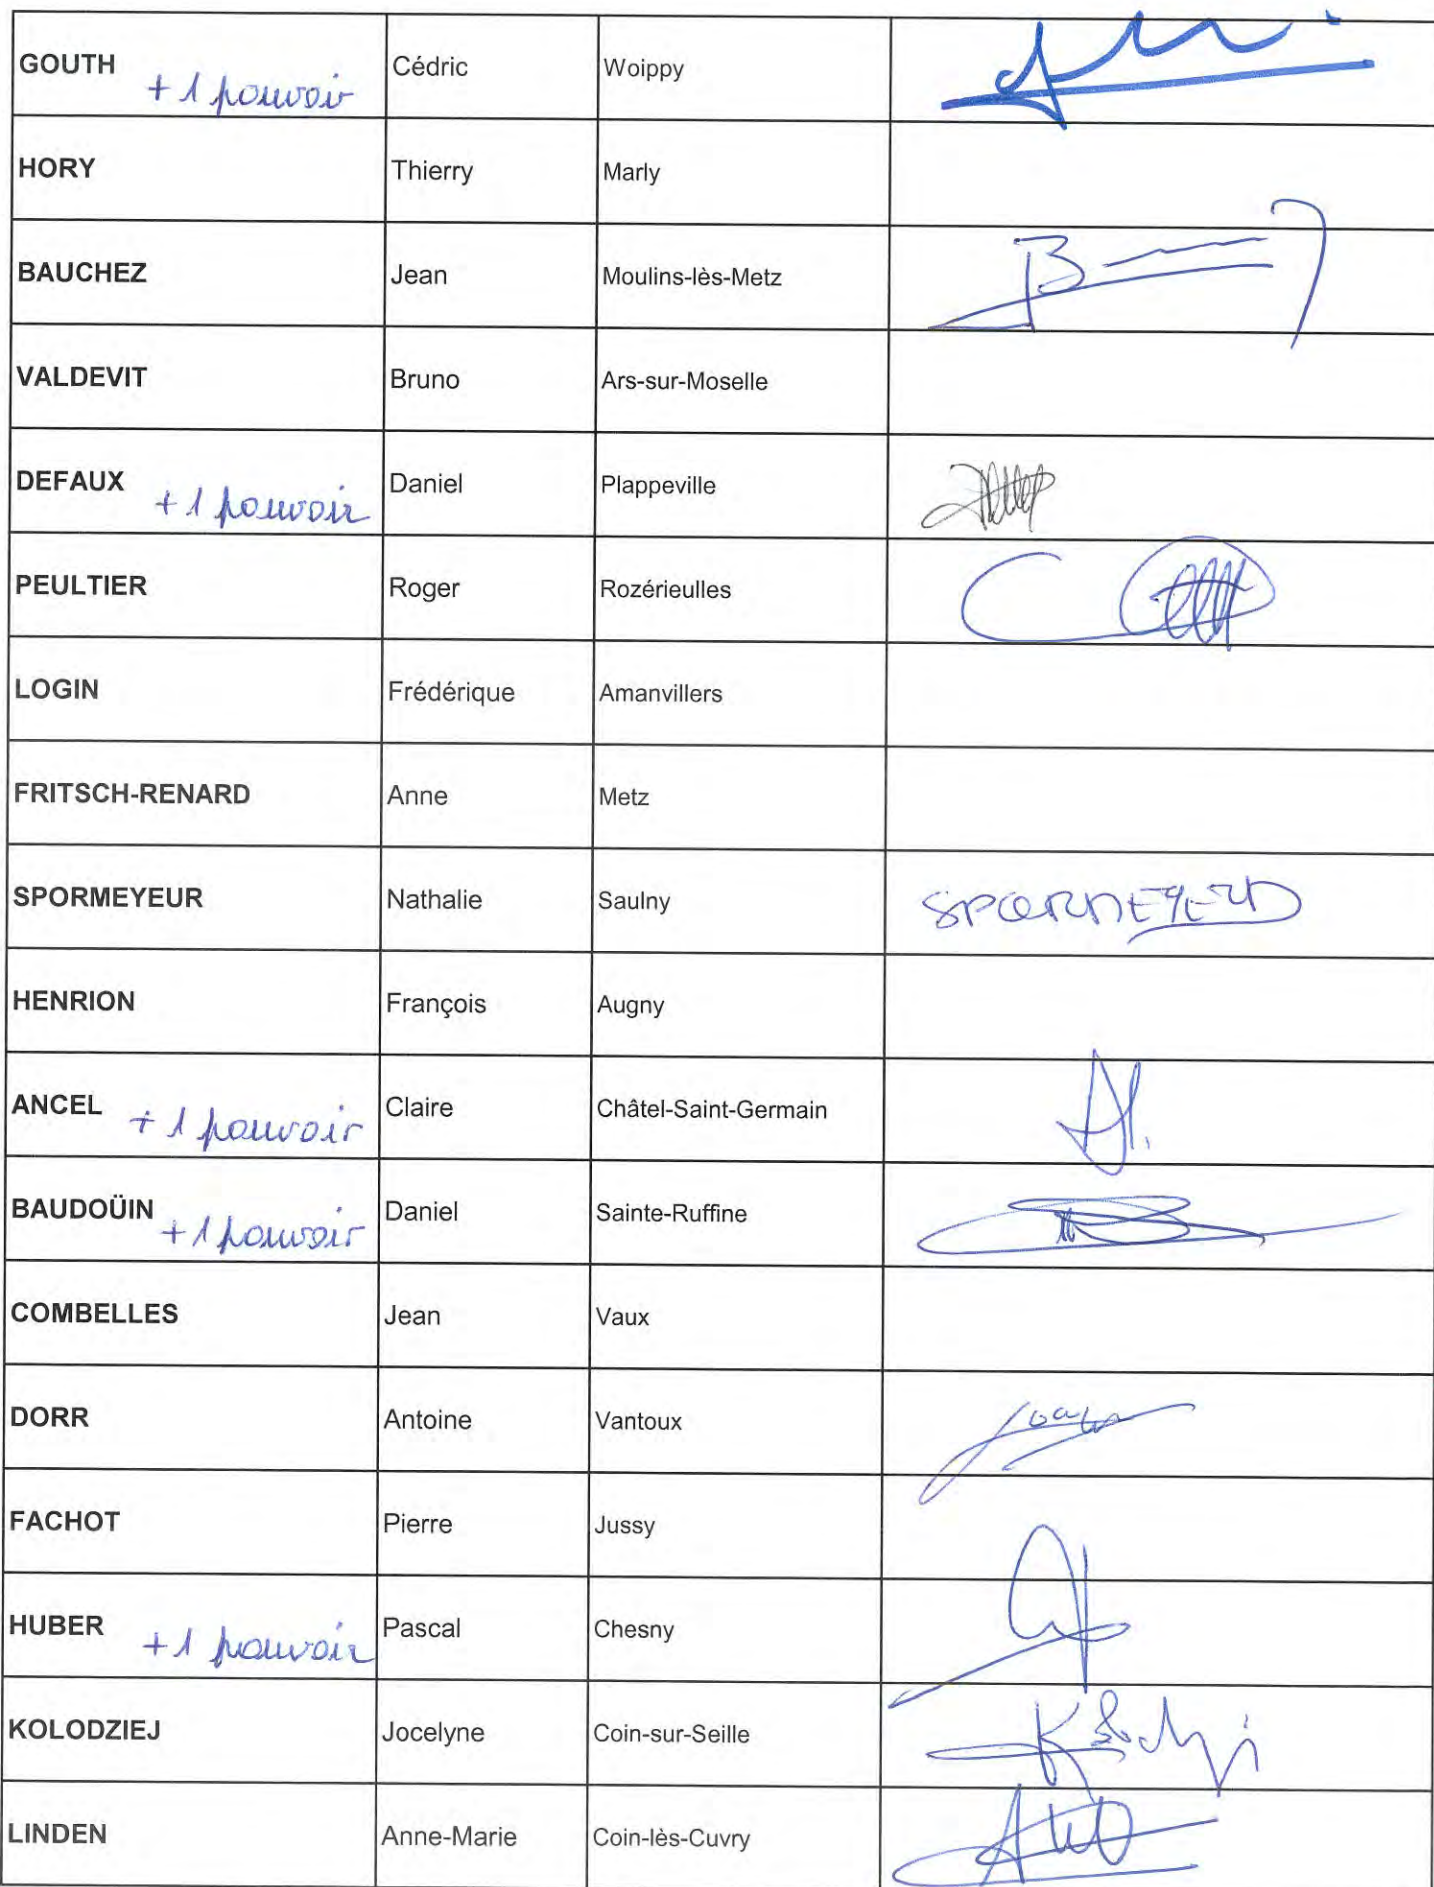 GOUTH + 1 pouvoir Cédric Woippy
HORY Thierry Marly
BAUCHEZ Jean Moulins-lès-Metz
VALDEVIT Bruno Ars-sur-Moselle
DEFAUX + 1 pouvoir Daniel Plappeville
PEULTIER Roger Rozérieulles
LOGIN Frédérique Amanvillers
FRITSCH-RENARD Anne Metz
SPORMEYEUR Nathalie Saulny
HENRION François Augny
ANCEL + 1 pouvoir Claire Châtel-Saint-Germain
BAUDOÜIN + 1 pouvoir Daniel Sainte-Ruffine
COMBELLES Jean Vaux
DORR Antoine Vantoux
FACHOT Pierre Jussy
HUBER + 1 pouvoir Pascal Chesny
KOLODZIEJ Jocelyne Coin-sur-Seille
LINDEN Anne-Marie Coin-lès-Cuvry